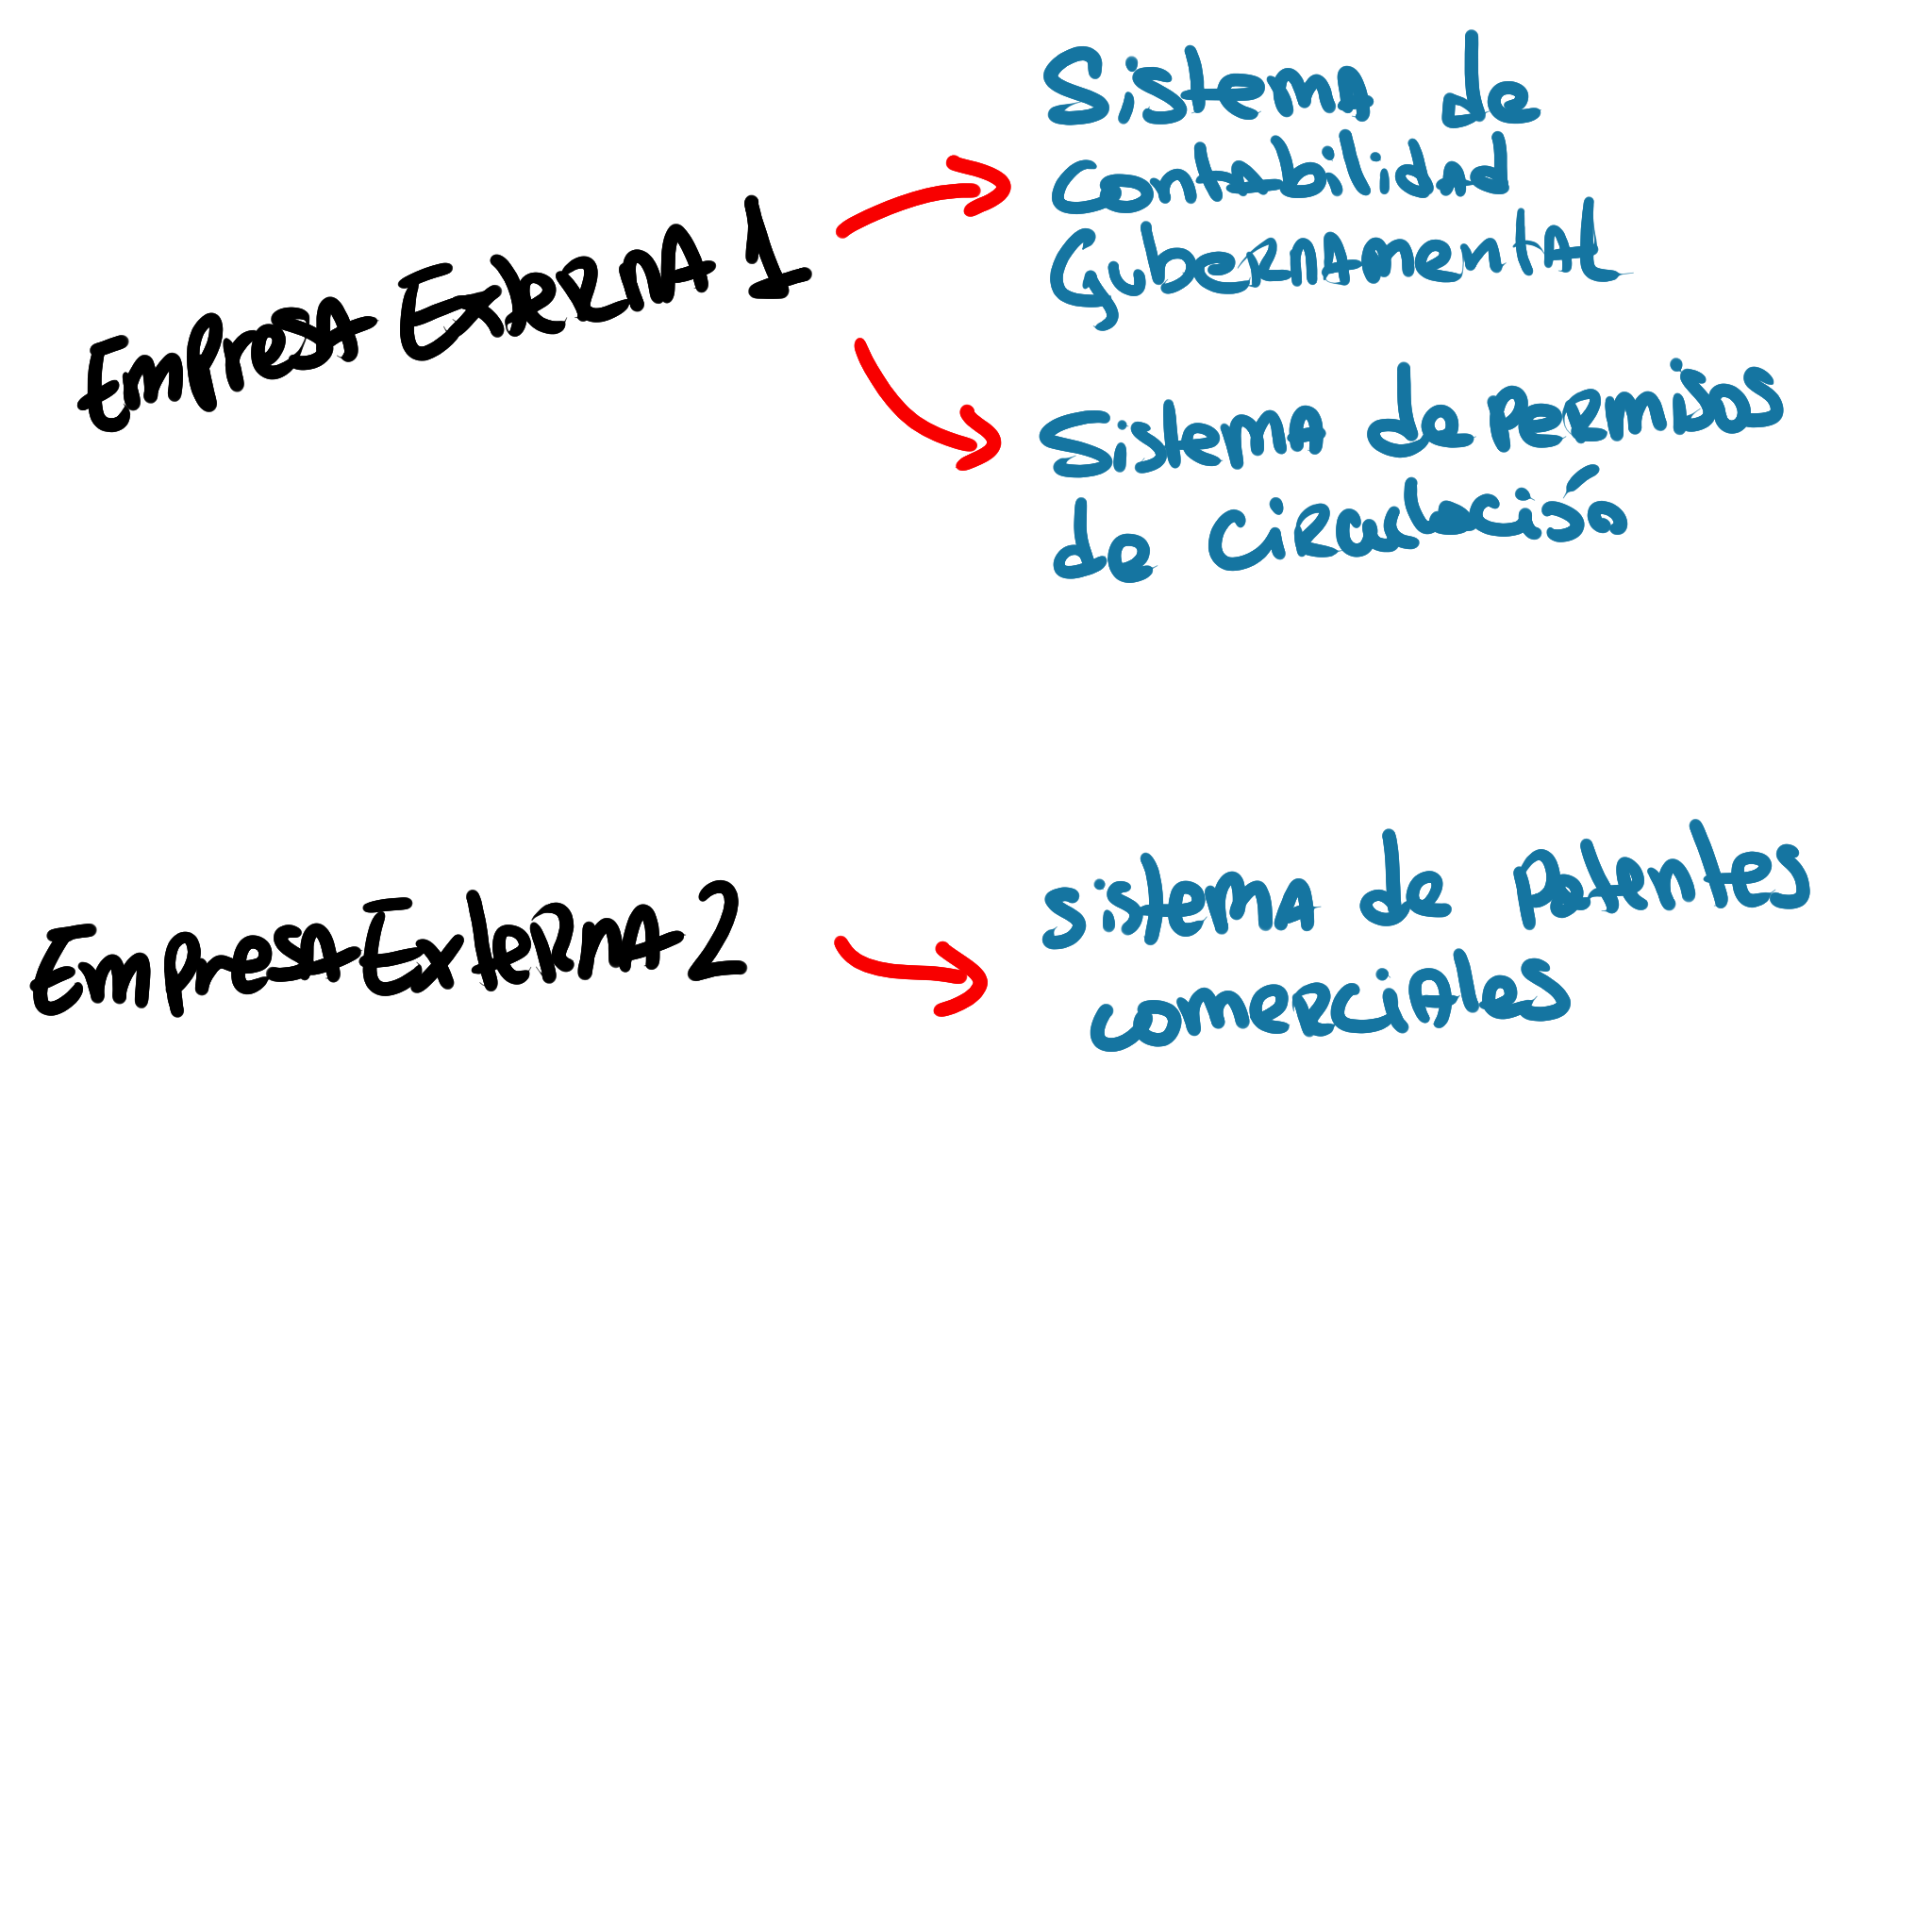 Empresa Externa 1
Sistema de
Contabilidad
Gubernamental
Sistema de Permisos
de Circulación
Empresa Externa 2
sistema de Patentes
comerciales